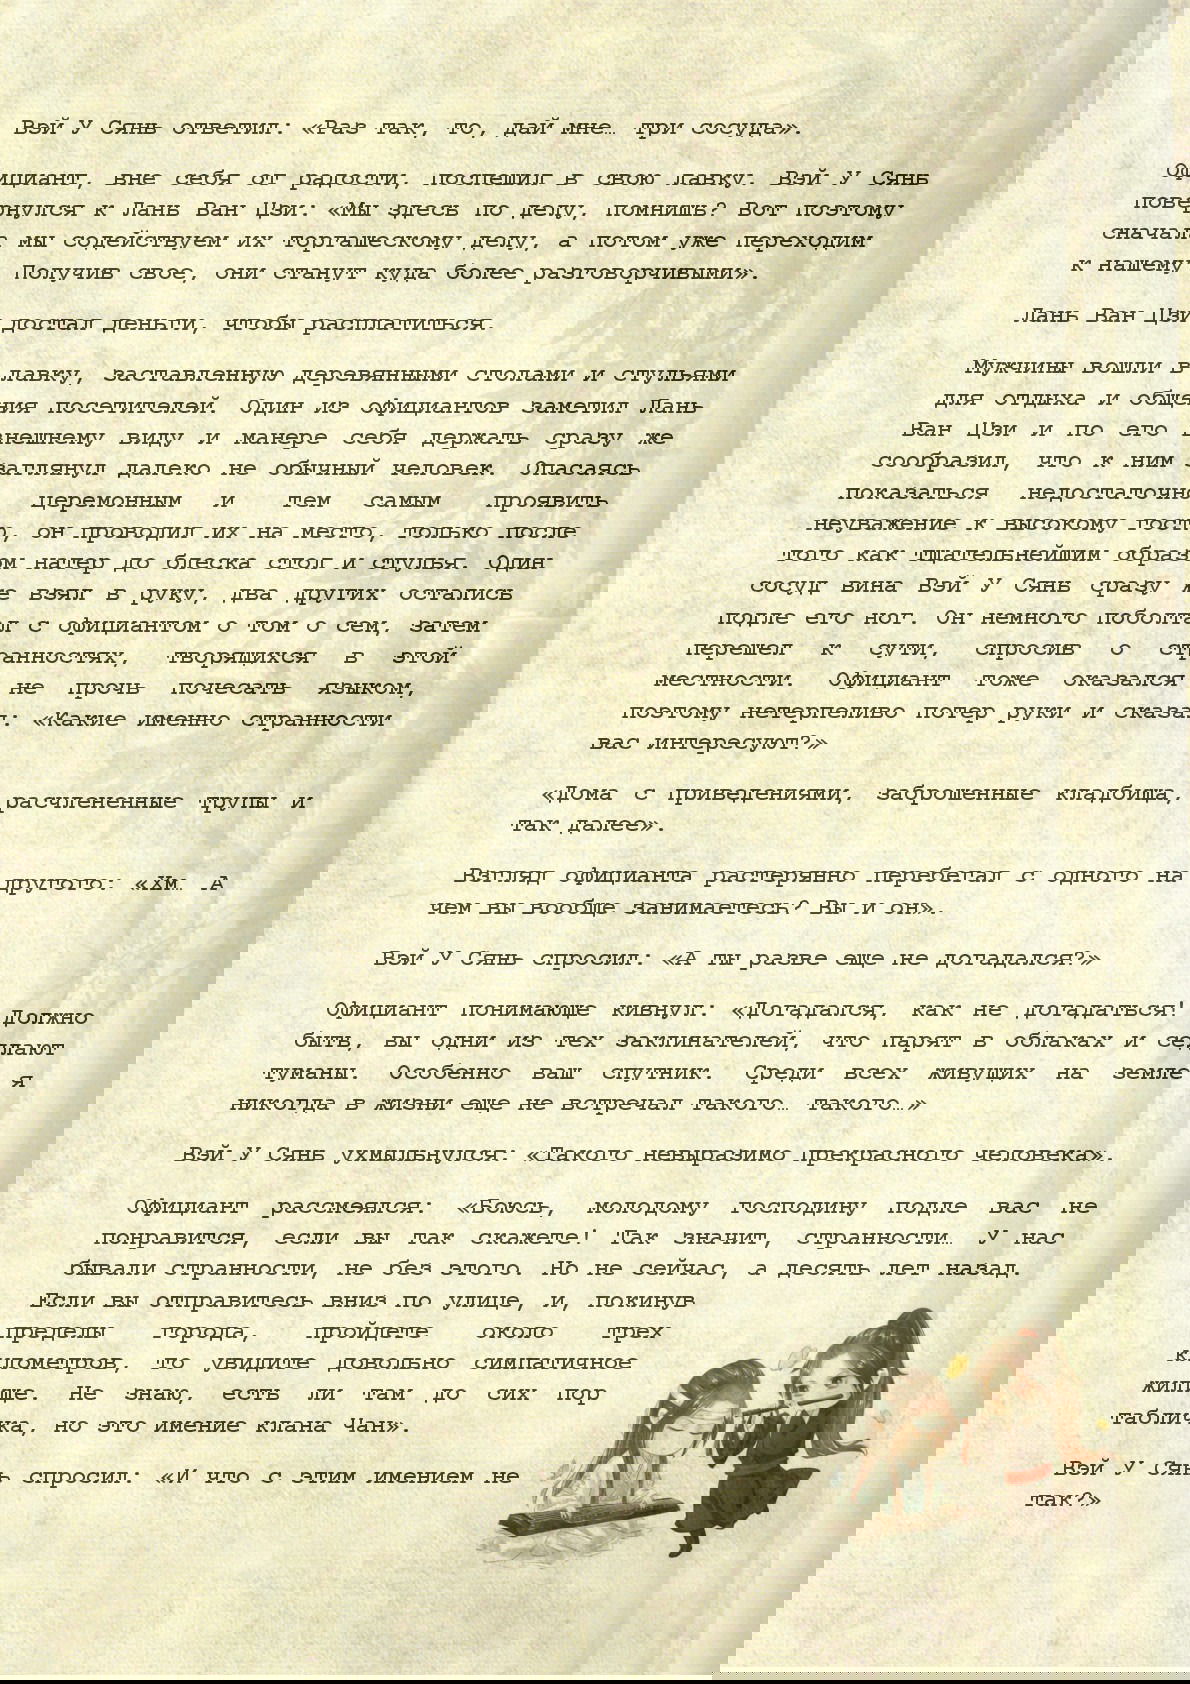 Вэй У Сянь ответил: «Раз так, то, дай мне… три сосуда».
Официант, вне себя от радости, поспешил в свою лавку. Вэй У Сянь
повернулся к Лань Ван Цзи: «Мы здесь по делу, помнишь? Вот поэтому
сначала мы содействуем их торгашескому делу, а потом уже переходим
к нашему. Получив свое, они станут куда более разговорчивыми».
Лань Ван Цзи достал деньги, чтобы расплатиться.
Мужчины вошли в лавку, заставленную деревянными столами и стульями
для отдыха и общения посетителей. Один из официантов заметил Лань
Ван Цзи и по его внешнему виду и манере себя держать сразу же
сообразил, что к ним заглянул далеко не обычный человек. Опасаясь
показаться недостаточно церемонным и тем самым проявить
неуважение к высокому гостю, он проводил их на место, только после
того как тщательнейшим образом натер до блеска стол и стулья. Один
сосуд вина Вэй У Сянь сразу же взял в руку, два других остались
подле его ног. Он немного поболтал с официантом о том о сем, затем
перешел к сути, спросив о странностях, творящихся в этой
местности. Официант тоже оказался не прочь почесать языком,
поэтому нетерпеливо потер руки и сказал: «Какие именно странности
вас интересуют?»
«Дома с приведениями, заброшенные кладбища, расчлененные трупы и
так далее».
Взгляд официанта растерянно перебегал с одного на другого: «Хм… А
чем вы вообще занимаетесь? Вы и он».
Вэй У Сянь спросил: «А ты разве еще не догадался?»
Официант понимающе кивнул: «Догадался, как не догадаться! Должно
быть, вы одни из тех заклинателей, что парят в облаках и седлают
туманы. Особенно ваш спутник. Среди всех живущих на земле я
никогда в жизни еще не встречал такого… такого…»
Вэй У Сянь ухмыльнулся: «Такого невыразимо прекрасного человека».
Официант рассмеялся: «Боюсь, молодому господину подле вас не
понравится, если вы так скажете! Так значит, странности… У нас
бывали странности, не без этого. Но не сейчас, а десять лет назад.
Если вы отправитесь вниз по улице, и, покинув
пределы города, пройдете около трех
километров, то увидите довольно симпатичное
жилище. Не знаю, есть ли там до сих пор
табличка, но это имение клана Чан».
Вэй У Сянь спросил: «И что с этим имением не
так?»